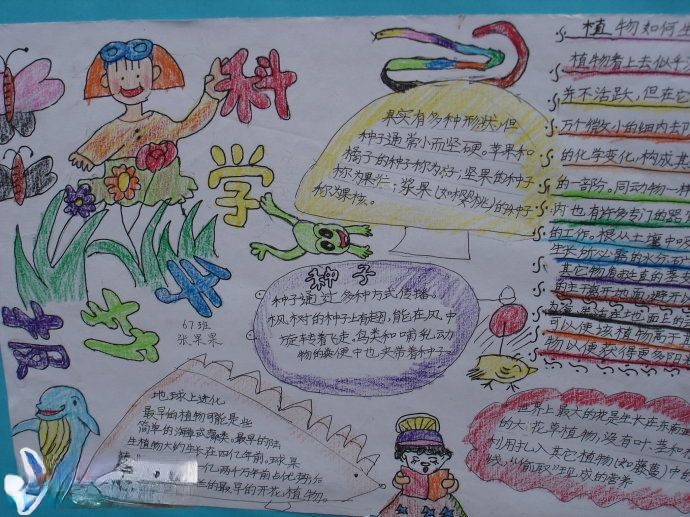 科
学
技
术
报
67班
张果果
果实有多种形状,但
种子通常小而坚硬。苹果和
橘子的种子称为
称为果
浆果(如樱桃)的种子
称为果核。
种子
种子通过多种方式传播。
枫树的种子上有翅,能在风中
旋转着飞走。鸟类和哺乳动
物的粪便中也夹带着种子
地球上进化
最早的植物可能是些
简单的海藻或
最早的陆
生植物大约生长在四亿年前。
亿两千万年前
的最早的开花植物。
植物如何生
植物看上去似乎
并不活跃,但在它
万个微小的细
的化学变化,构成其
的一部份。同动物一样
内也有许多专门的器
的工作。根从土壤中吸
生长所必需的水分
其它物质
可以使该植物高于
物以便获得更多阳
世界上最大的花是生长在东南亚
的大花草植物,没有叶、茎和
利用扎入其它植物(如藤蔓)中的
线,"偷取"现成的营养